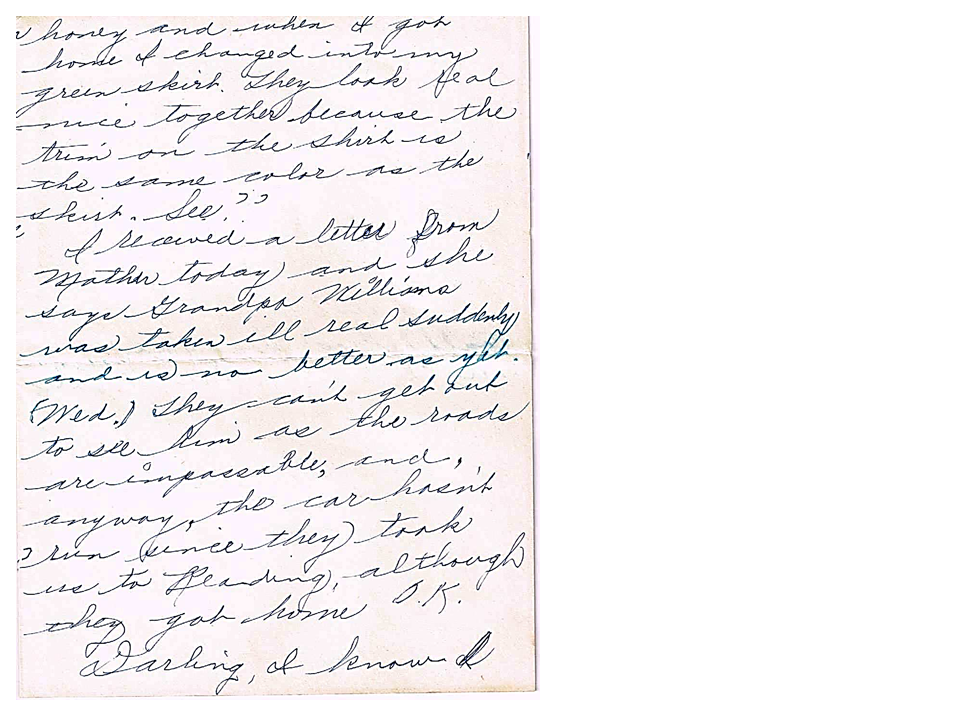 honey and when I got
home I changed into my
green skirt. They look real
nice together because the
trim on the shirt is
the same color as the
skirt. See??
I received a letter from
Mother today and she
says Grandpa Williams
was taken ill real suddenly
and is no better as yet.
(Wed.) They can't get out
to see him as the roads
are impassable, and,
anyway, the car hasn't
run since they took
us to Reading, although
they got home O.K.
Darling, I know I